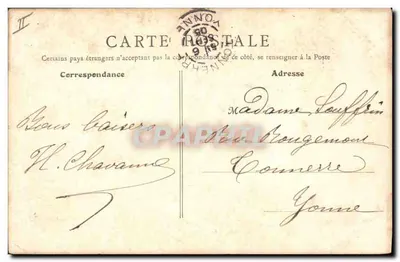 II
CARTE POSTALE
Certains pays étrangers n'acceptant pas la correspondance de ce côté, se renseigner à la Poste
Correspondance
Adresse
Bons baisers
H. Chavanne
Madame Souffrin
Rue Rougemont
Tonnerre
Yonne
TONNERRE
YONNE
CPAPHIL